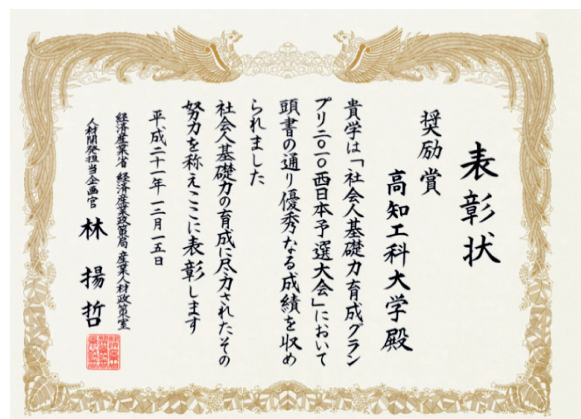 表彰状
奨励賞
高知工科大学殿
貴学は「社会人基礎力育成グラン
プリ二〇一〇西日本予選大会」において
頭書の通り優秀なる成績を収め
られました
社会人基礎力の育成に尽力されたその
努力を称えここに表彰します
平成二十一年一二月一五日
経済産業省 経済産業政策局 産業人材政策室
人材開発担当企画官 林 揚哲